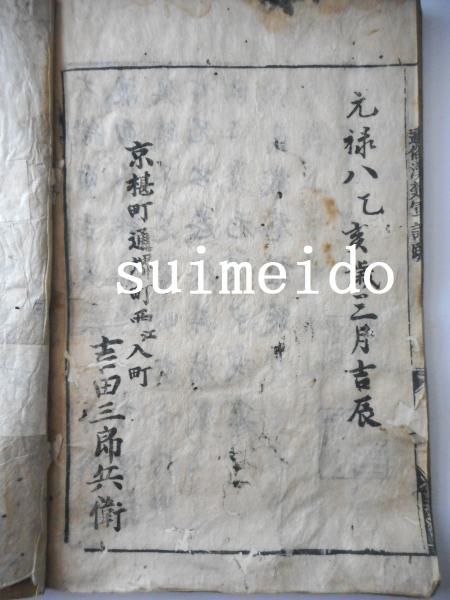 元禄八乙亥歳三月吉辰
京椹町通堺町西江入町
吉田三郎兵衛
suimeido